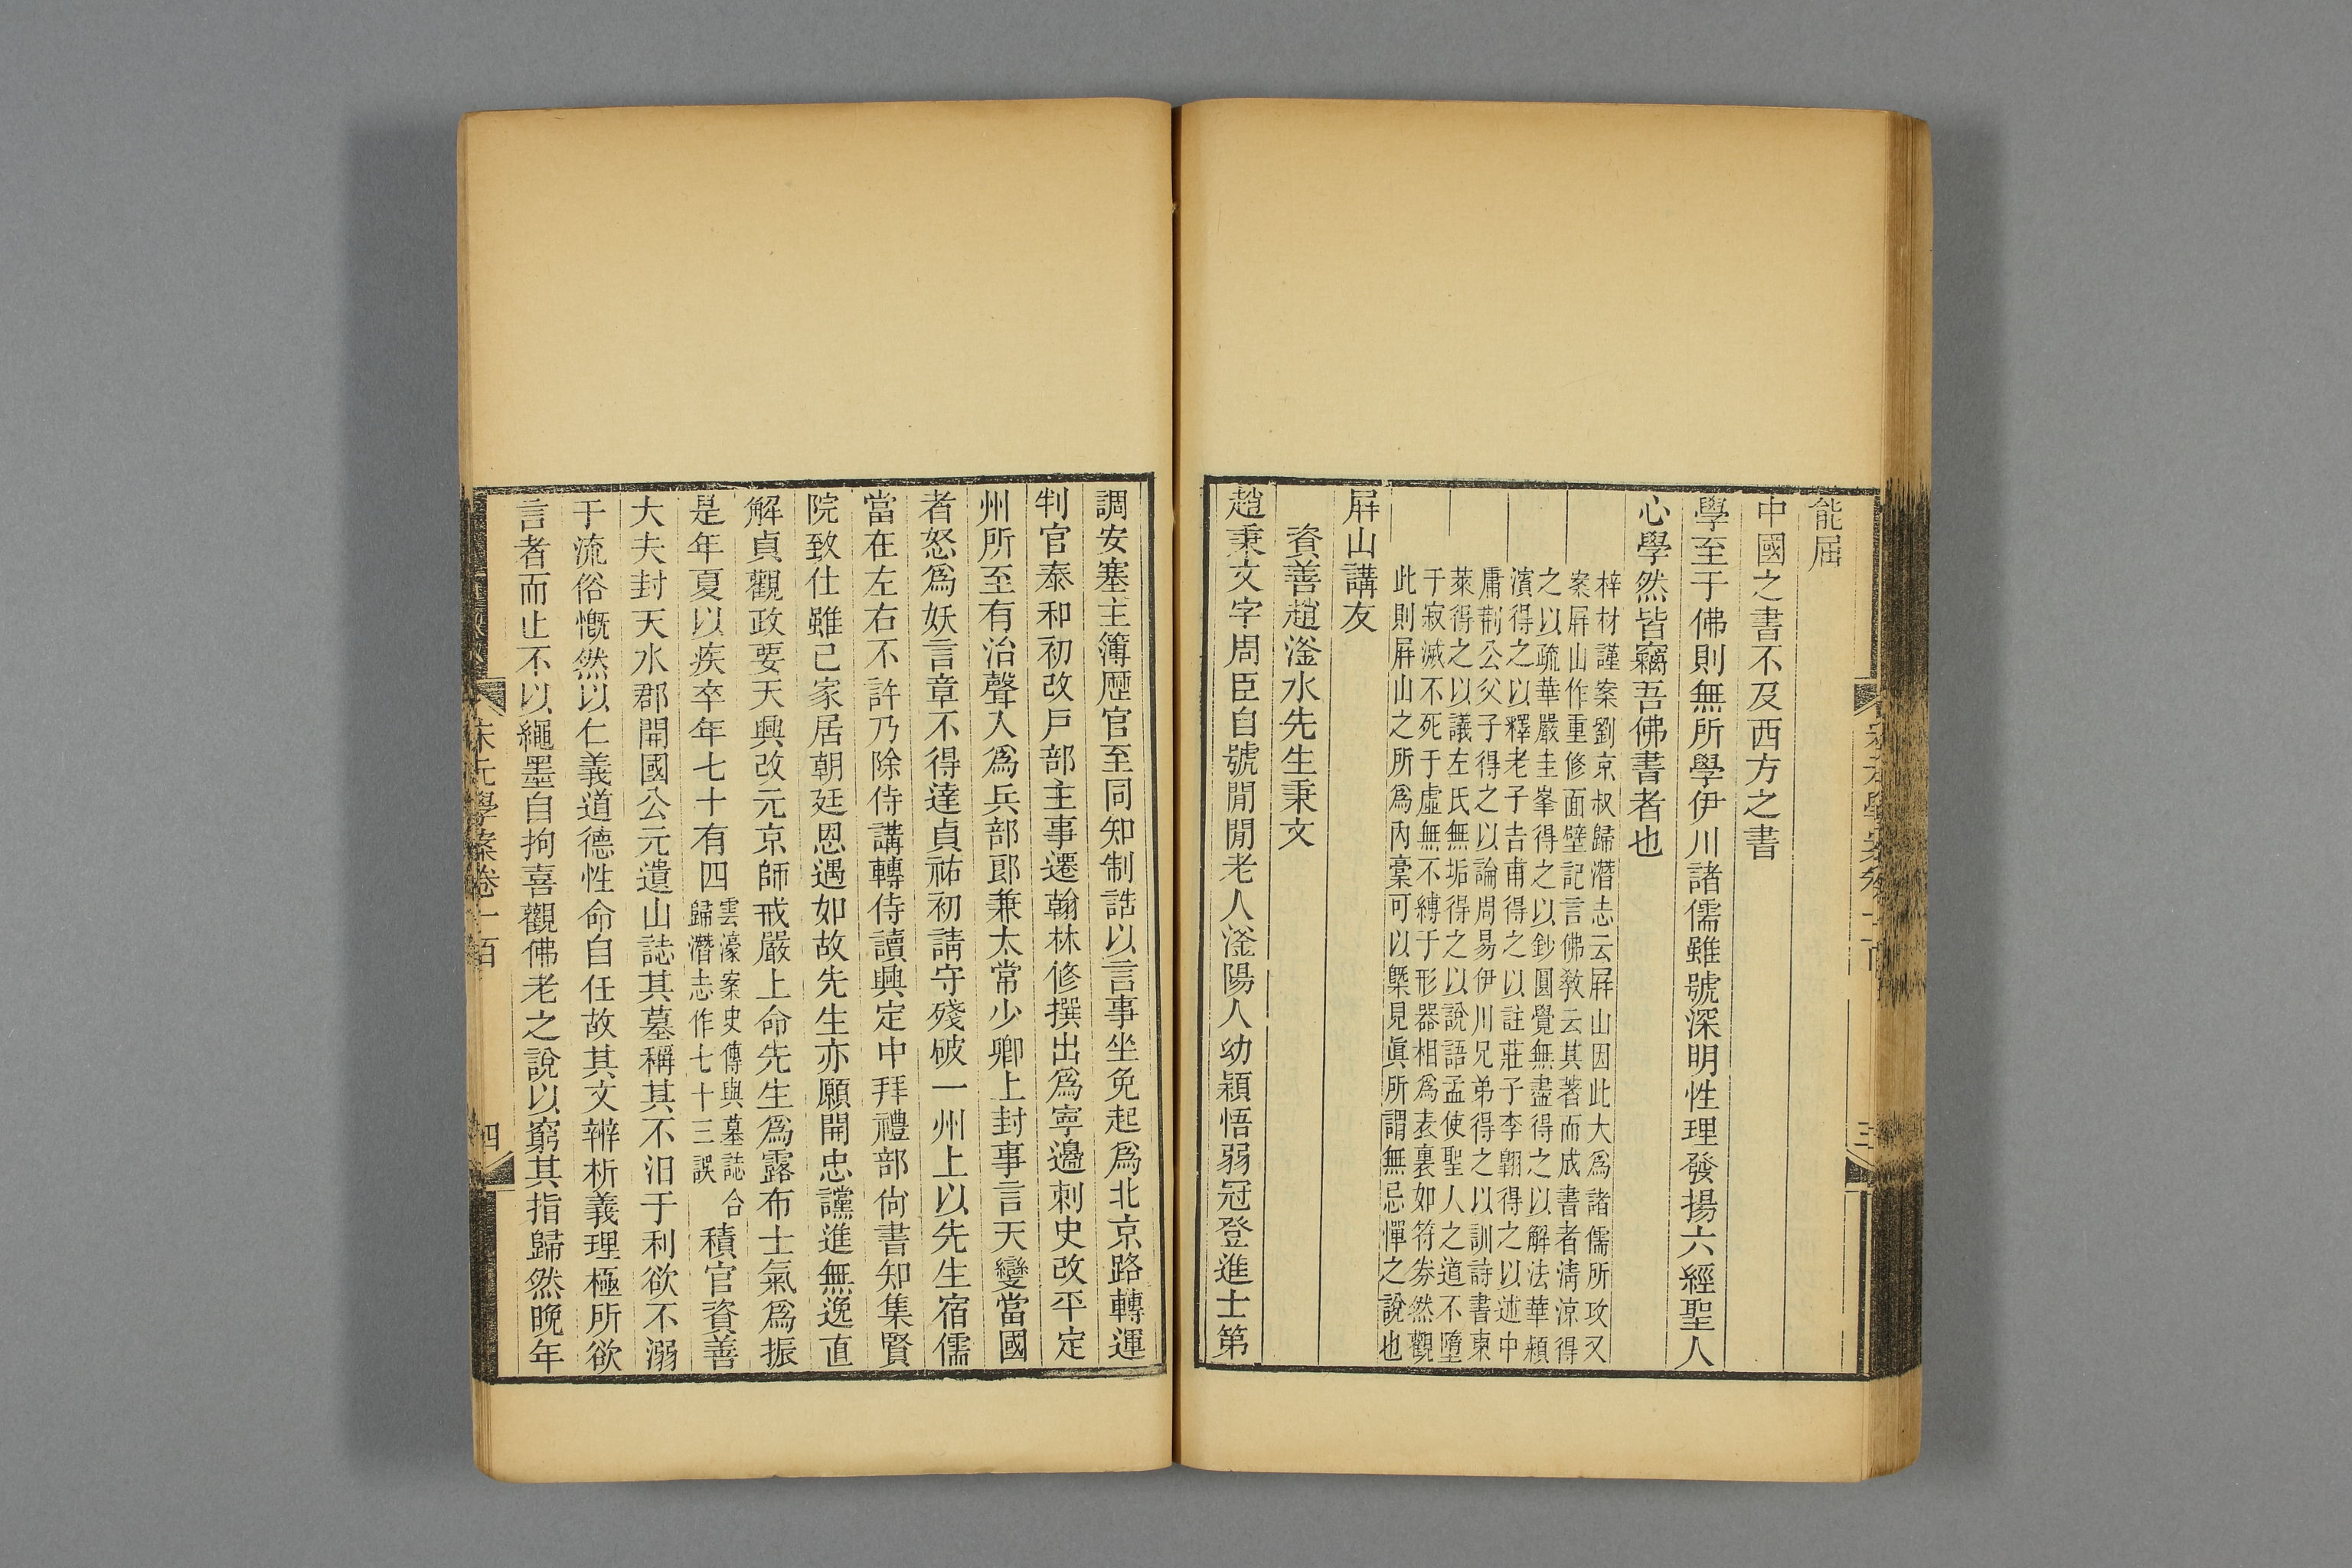 能屈
中國之書不及西方之書
學至于佛則無所學伊川諸儒雖號深明性理發揚六經聖人
心學然皆竊吾佛書者也
梓材謹案劉京叔歸潛志云屛山因此大爲諸儒所攻又
案屛山作重修面壁記言佛敎云其著而成書者淸涼得
之以疏華嚴圭峯得之以鈔圓覺無盡得之以解法華穎
濱得之以釋老子吉甫得之以註莊子李翺得之以述中
庸荆公父子得之以論周易伊川兄弟得之以訓詩書東
萊得之以議左氏無垢得之以說語孟使聖人之道不墮
于寂滅不死于虛無不縛于形器相爲表裏如符券然觀
此則屛山之所爲內稾可以槩見眞所謂無忌憚之說也
屛山講友
資善趙滏水先生秉文
趙秉文字周臣自號閒閒老人滏陽人幼穎悟弱冠登進士第
調安塞主簿歷官至同知制誥以言事坐免起爲北京路轉運
判官泰和初改戶部主事遷翰林修撰出爲寧邊刺史改平定
州所至有治聲入爲兵部郎兼太常少卿上封事言天變當國
者怒爲妖言章不得達貞祐初請守殘破一州上以先生宿儒
當在左右不許乃除侍講轉侍讀興定中拜禮部尙書知集賢
院致仕雖已家居朝廷恩遇如故先生亦願開忠讜進無逸直
解貞觀政要天興改元京師戒嚴上命先生爲露布士氣爲振
是年夏以疾卒年七十有四雲濠案史傳與墓誌合歸潛志作七十三誤積官資善
大夫封天水郡開國公元遺山誌其墓稱其不汨于利欲不溺
于流俗慨然以仁義道德性命自任故其文辨析義理極所欲
言者而止不以繩墨自拘喜觀佛老之說以窮其指歸然晚年
宋元學案卷一百
四